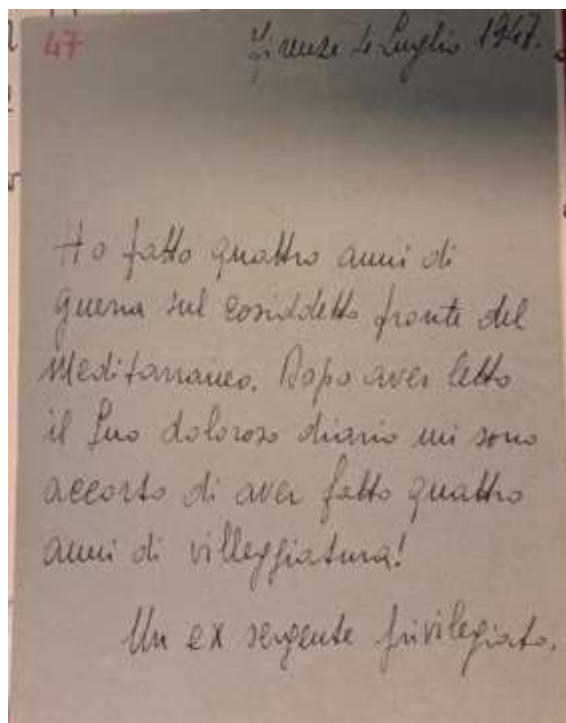 47
Firenze 4 Luglio 1947.
Ho fatto quattro anni di
guerra sul cosiddetto fronte del
Mediterraneo. Dopo aver letto
il Suo doloroso diario mi sono
accorto di aver fatto quattro
anni di villeggiatura!
Un ex sergente privilegiato.